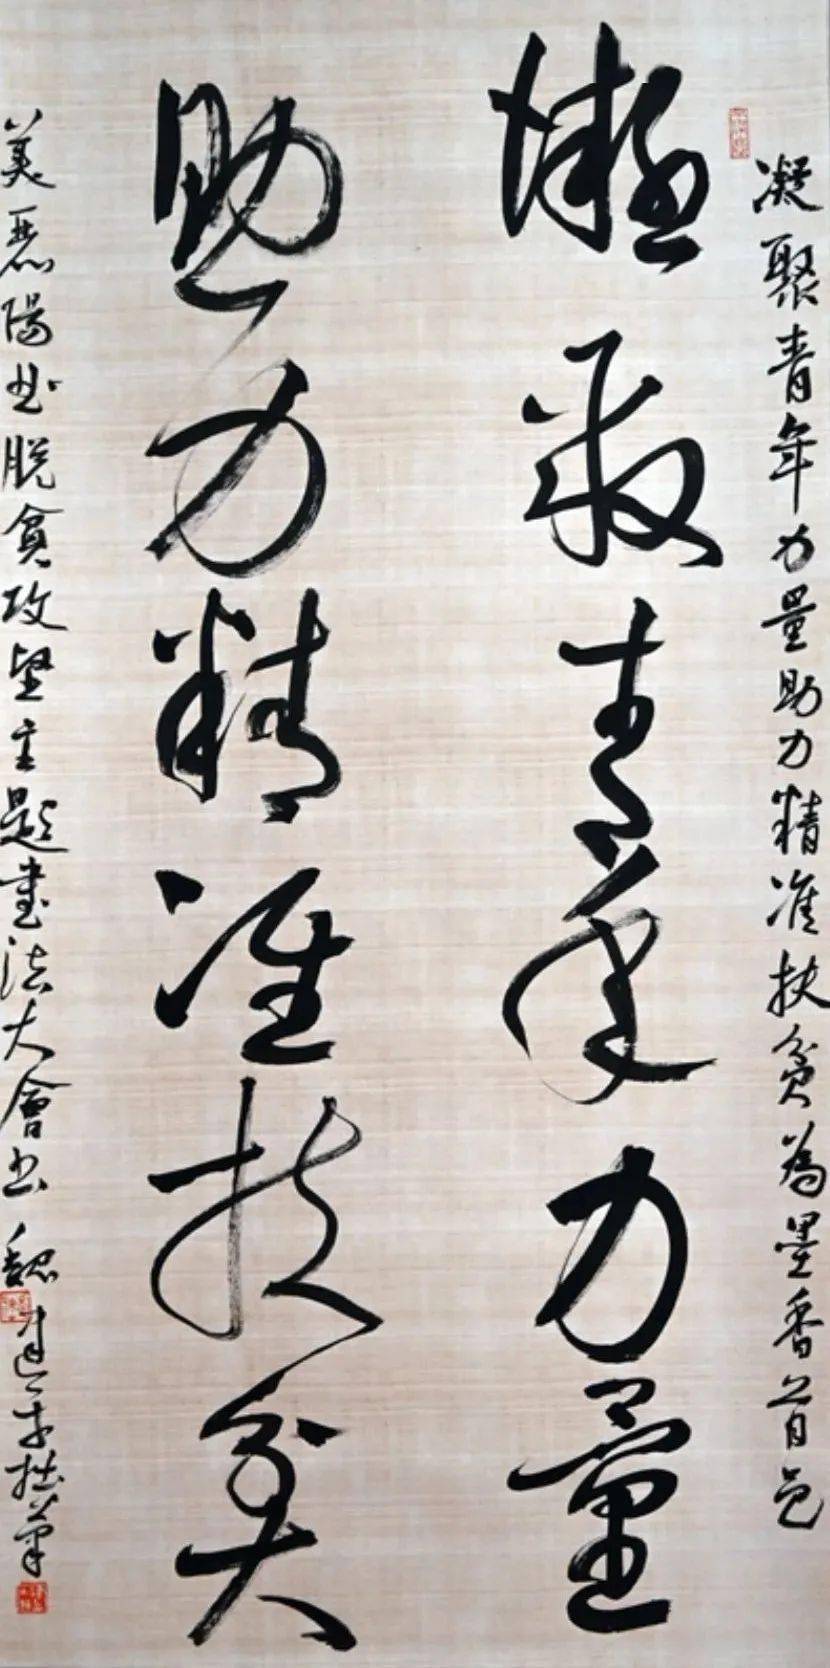 凝聚青年力量助力精准扶贫為墨香首邑
凝聚青年力量
助力精准扶贫
美陽书脱贫攻坚主题書法大會书 魏建拙筆